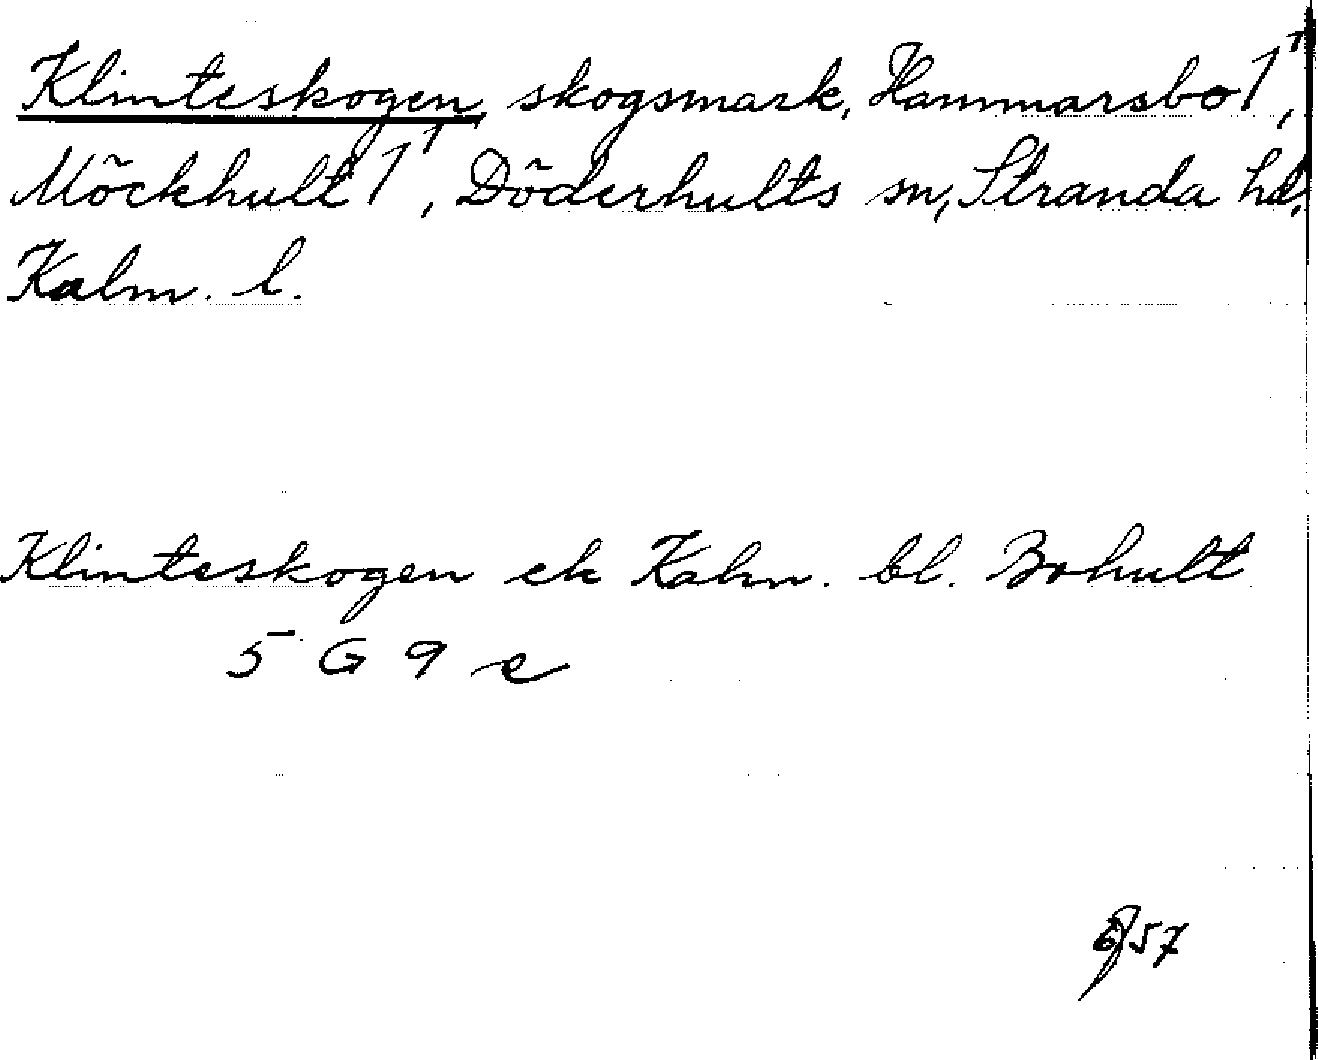 Klinteskogen, skogsmark, Hammarsbo 1¹,
Möckhult 1¹, Döderhults sn, Stranda hd.
Kalm. l.
Klinteskogen ek Kalm. bl. Bohult
5 G 9 e
57